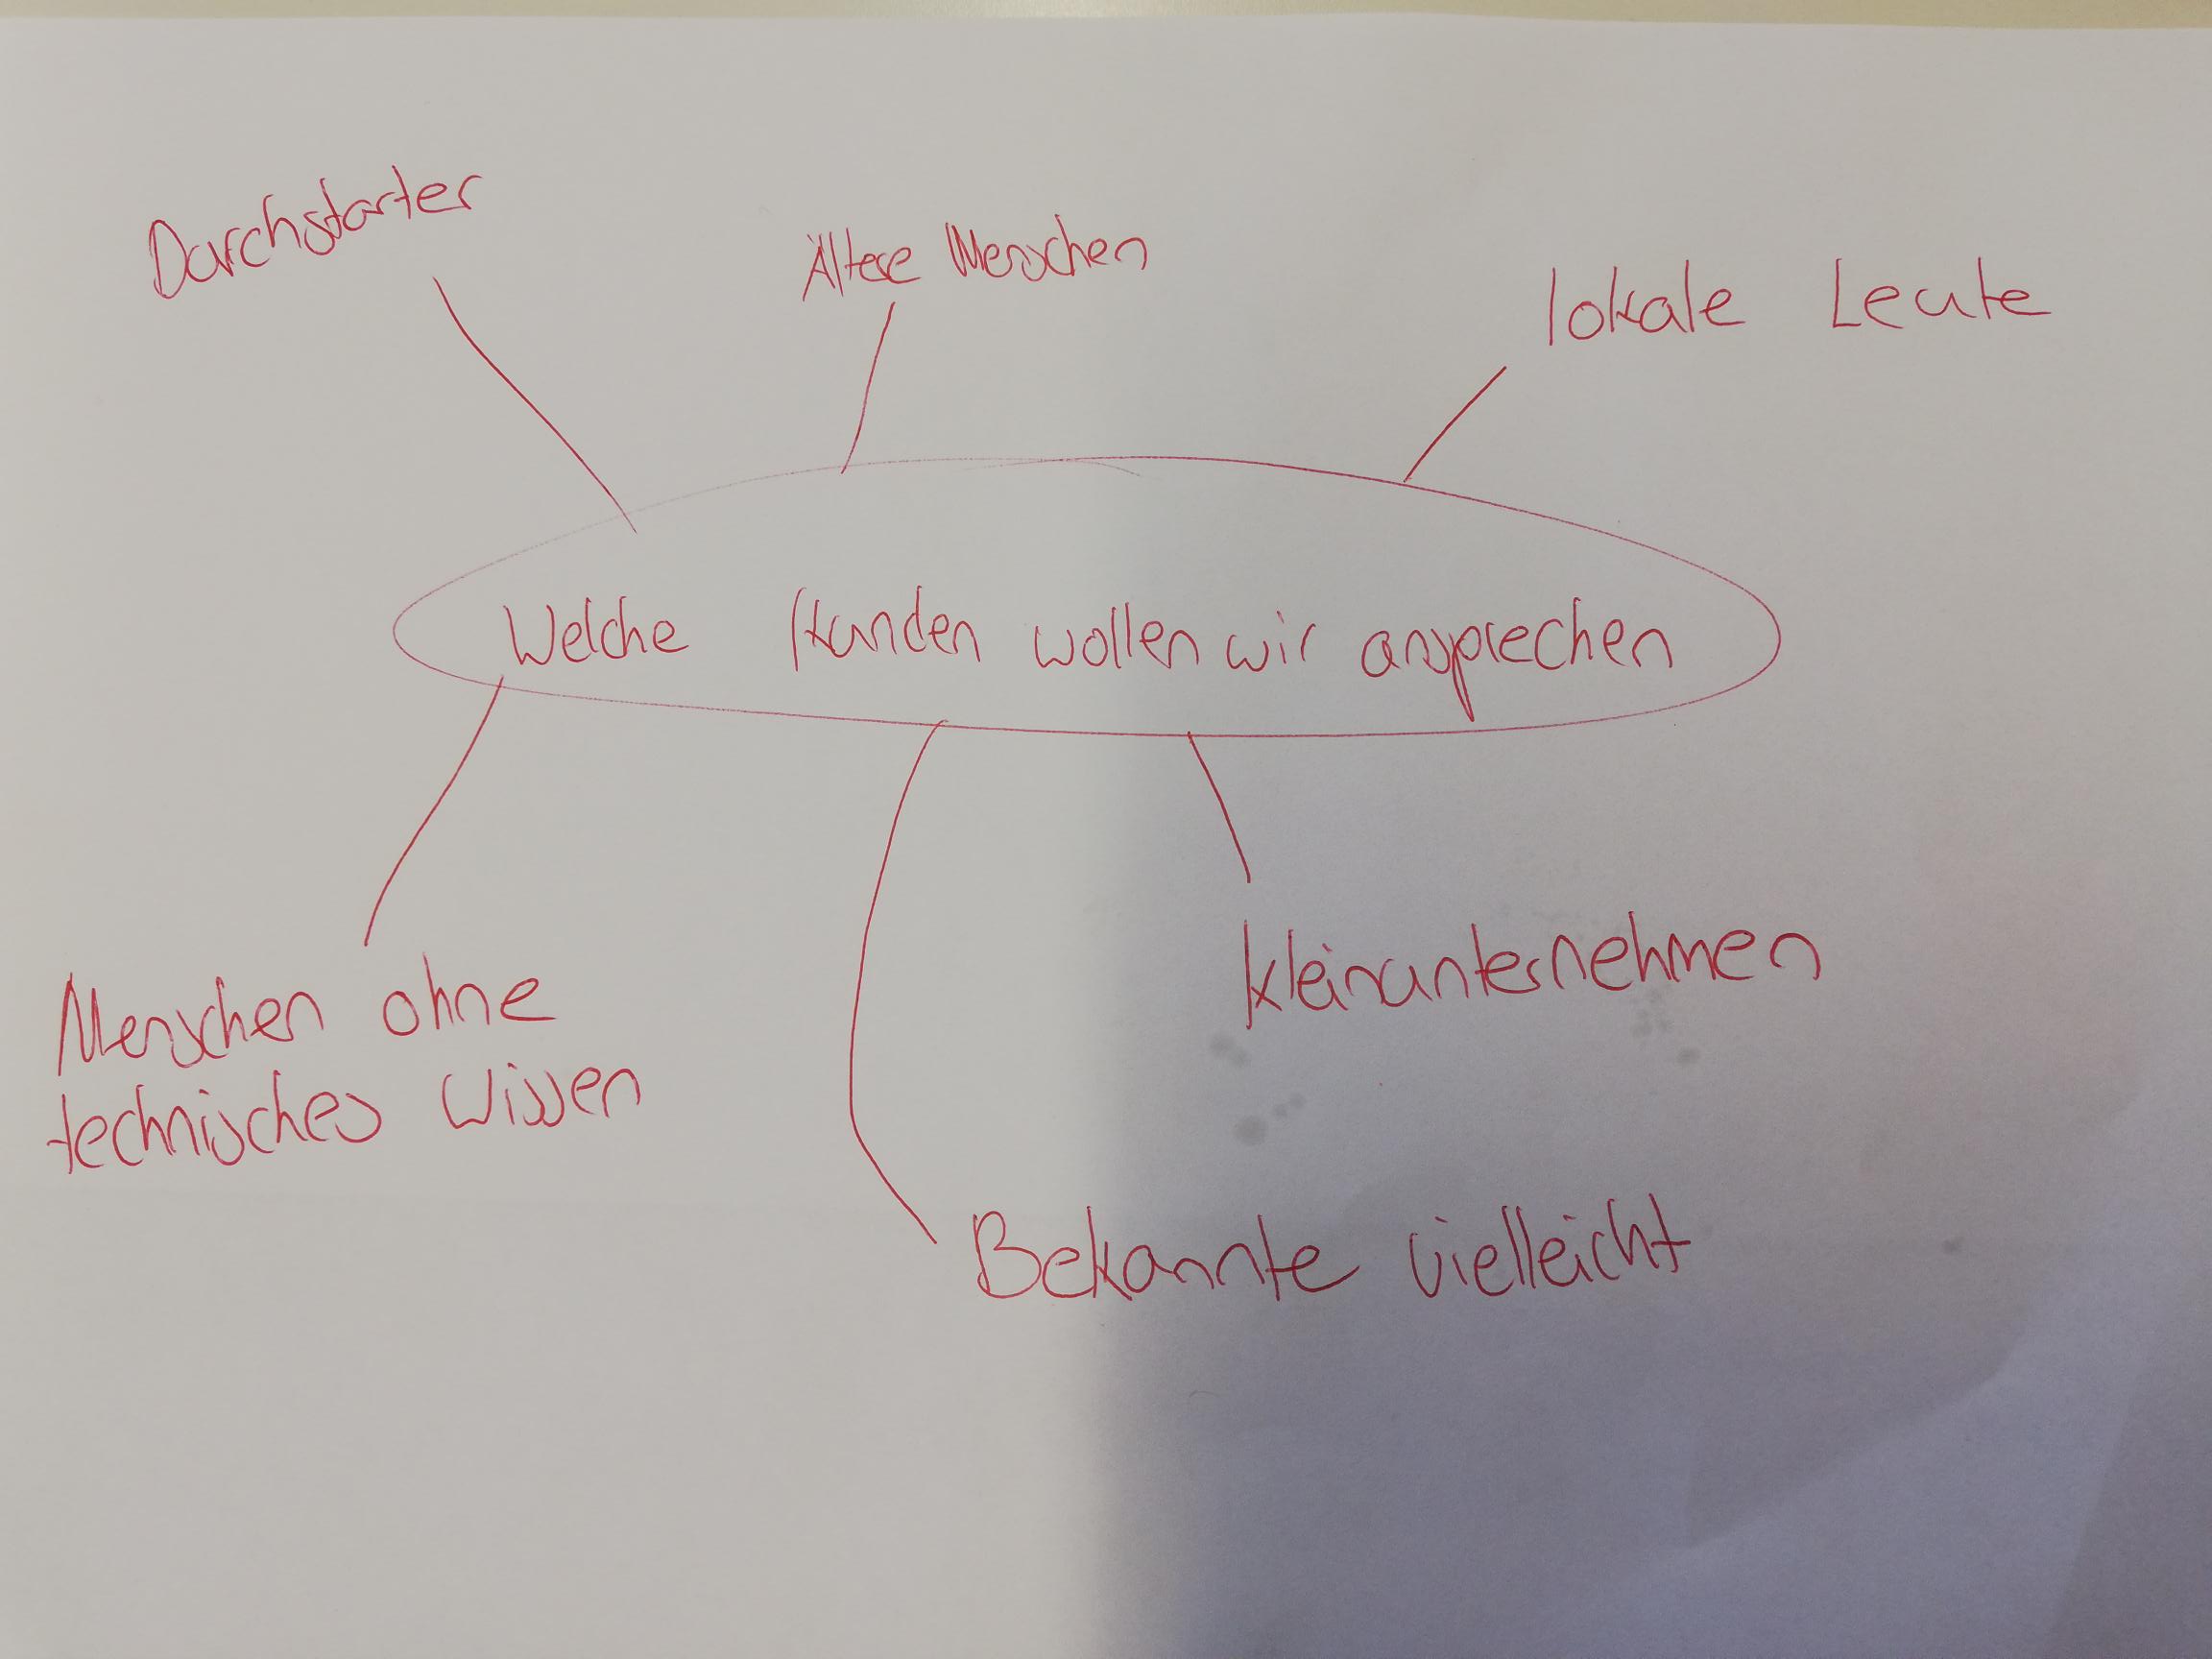 Durchstarter
Ältere Menschen
lokale Leute
Welche Kunden wollen wir ansprechen
Menschen ohne
technisches Wissen
kleinunternehmen
Bekannte vielleicht